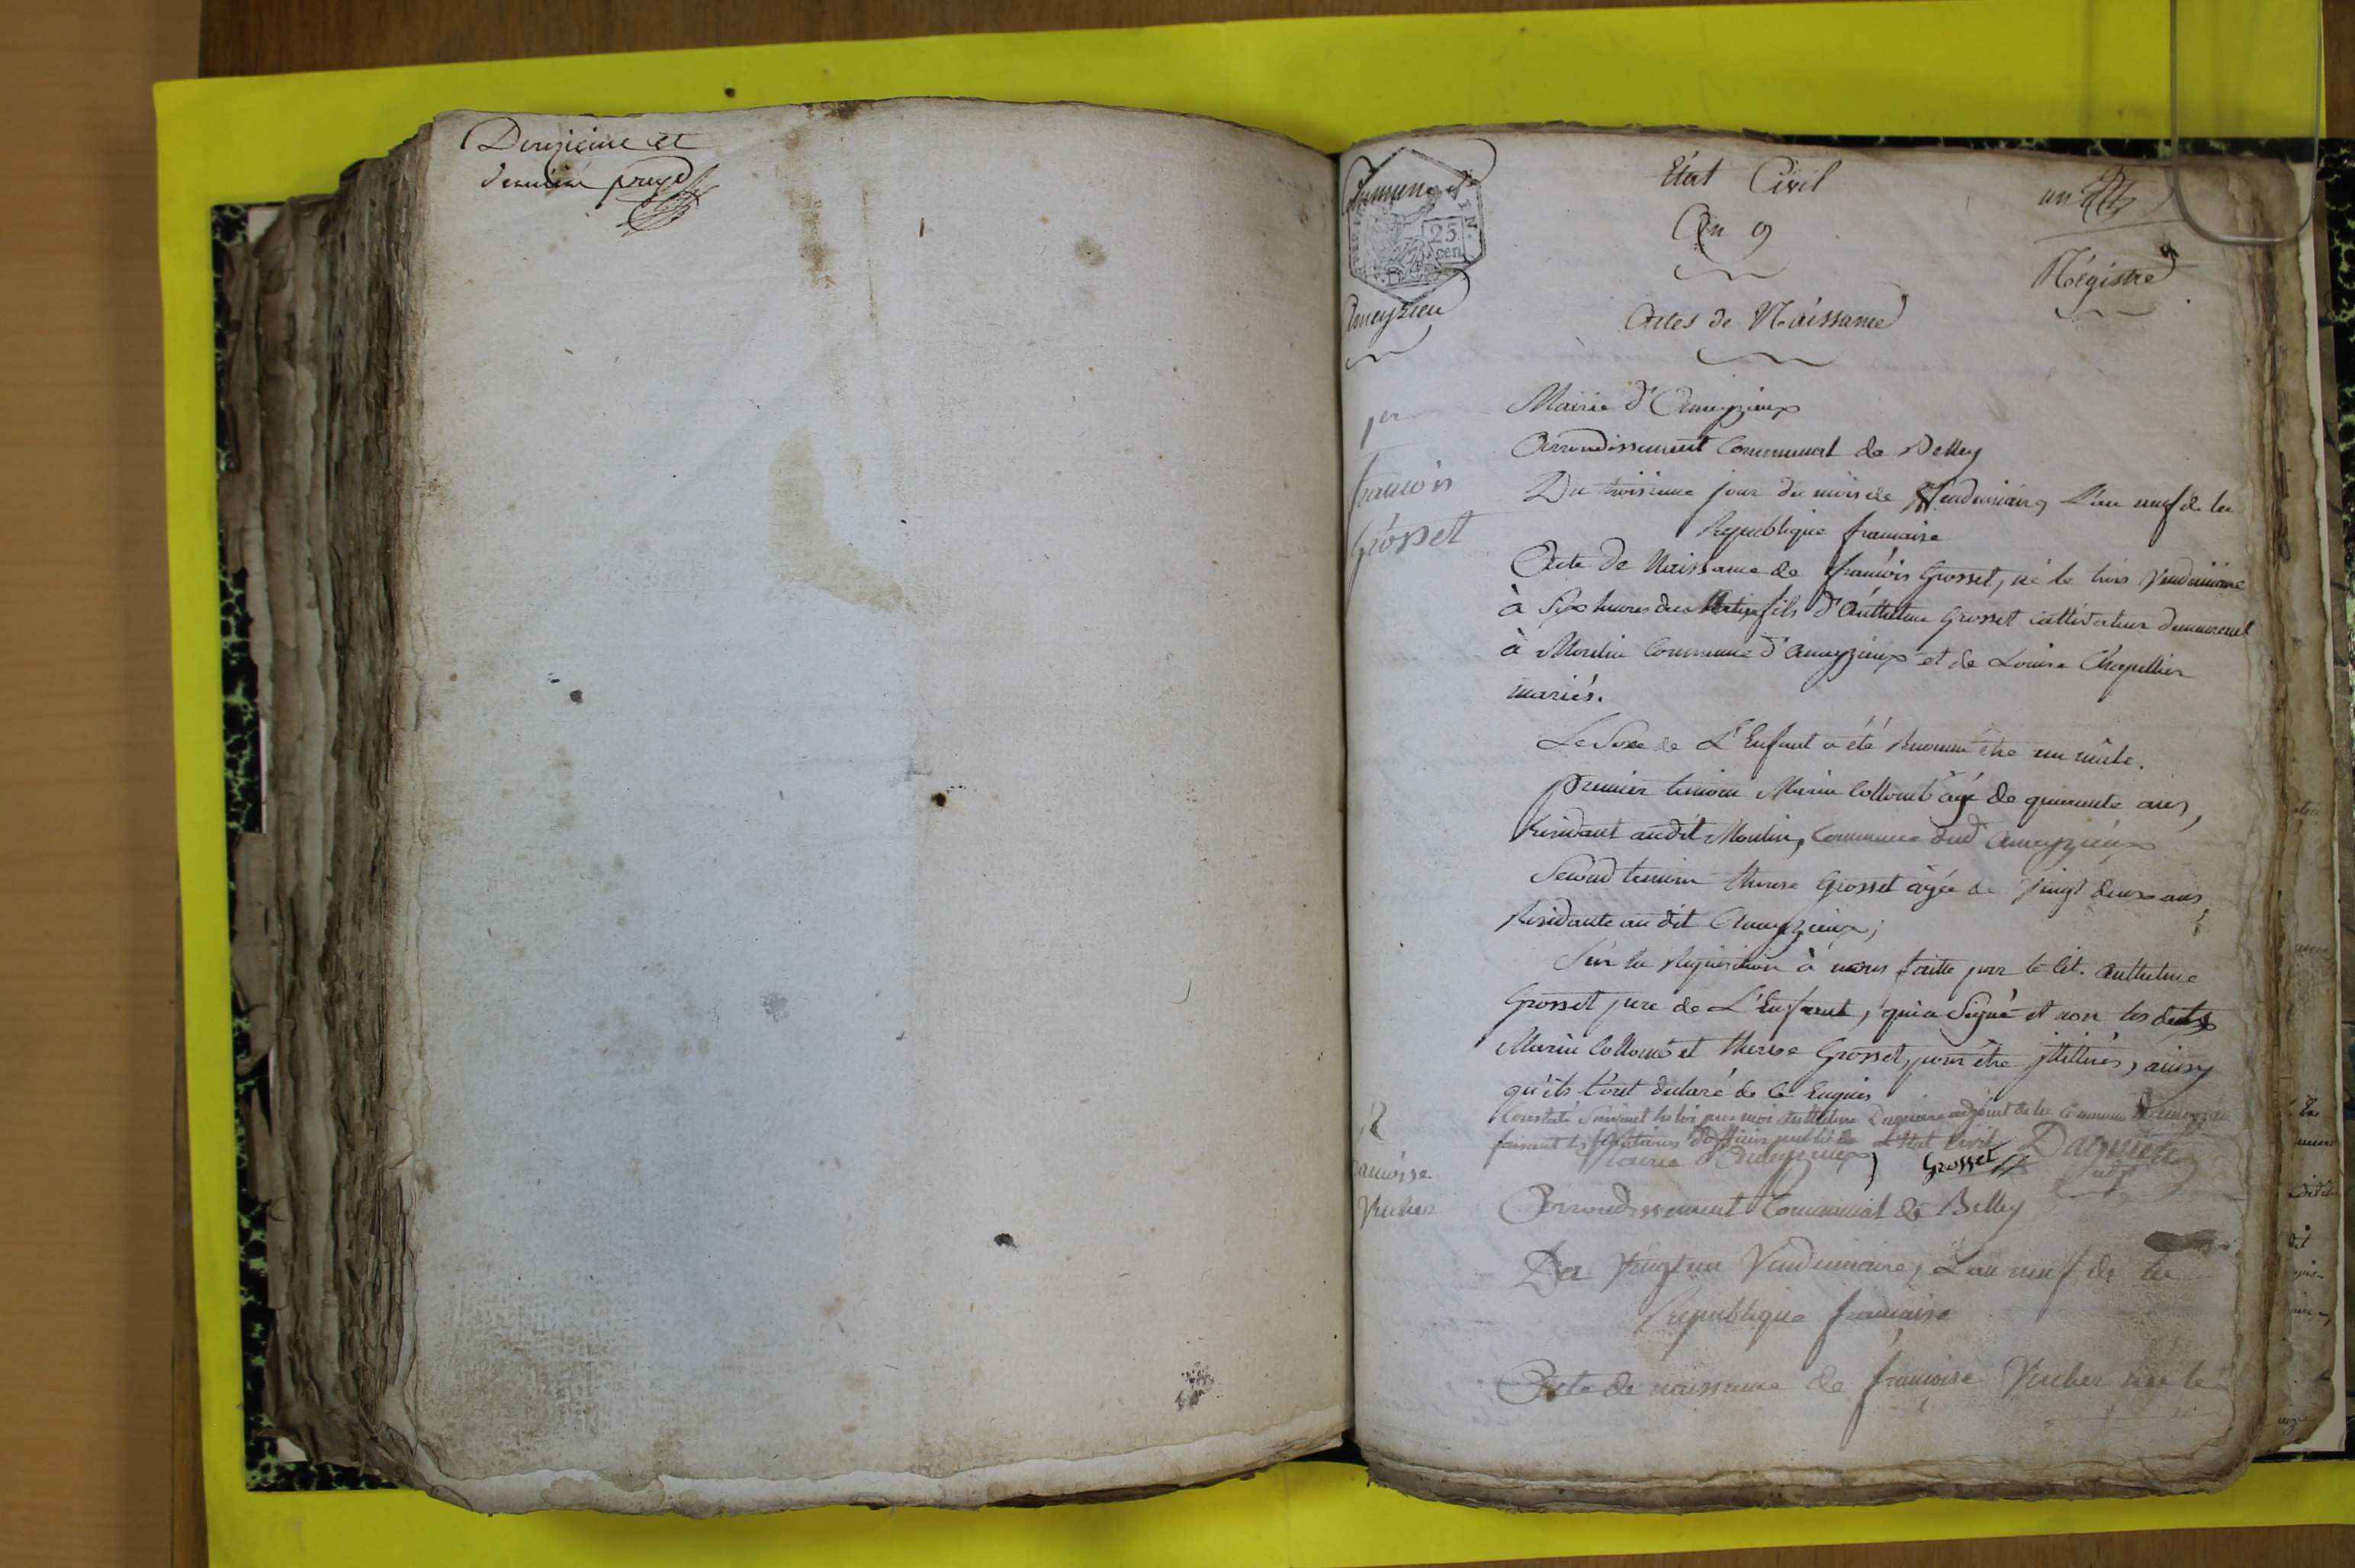 Douzieme et
derniere page
Commune de
25
cen
Ameyzieu
Etat Civil
An 9
Actes de Naissance
un
Régistre
1er
francois
Grosset
Mairie d'Ameyzieux
Arrondissement Communal de Belley
Du troisieme jour du mois de Vendemiaire, L'an neuf de la
Republique francaise
Acte de Naissance de francois Grosset, né le trois Vendemiaire
à Six heures du Matin, fils d'Anthelme Grosset cultivateur demeurant
à Moulin Commune d'Ameyzieux et de Louise Chapellier
mariés.
Le Sexe de L'Enfant a été Reconnu être un mâle.
premier temoin Marin Collomb âgé de quarante ans,
Residant audit Moulin, Commune dud Ameyzieux
Second temoin therese Grosset âgée de Vingt deux ans,
Residante audit Ameyzieux;
Sur la Requisition à nous faitte par le Cit. Anthelme
Grosset pere de L'Enfant, qui a Signé et non les dits
Marin Collomb et therese Grosset, pour être illitterés, ainsy
qu'ils l'ont declaré de ce Enquis
Constaté Suivant la loi par moi Anthelme adjoint de la Commune d'Ameyzieu
faisant les fonctions d'officier public de L'Etat Civil
Grosset
2
francoise
Vucher
Mairie d'Ameyzieux
Arrondissement Communal de Belley
Du Vingt un Vendemiaire, L'an neuf de la
Republique francaise
Acte de naissance de francoise Vucher née le